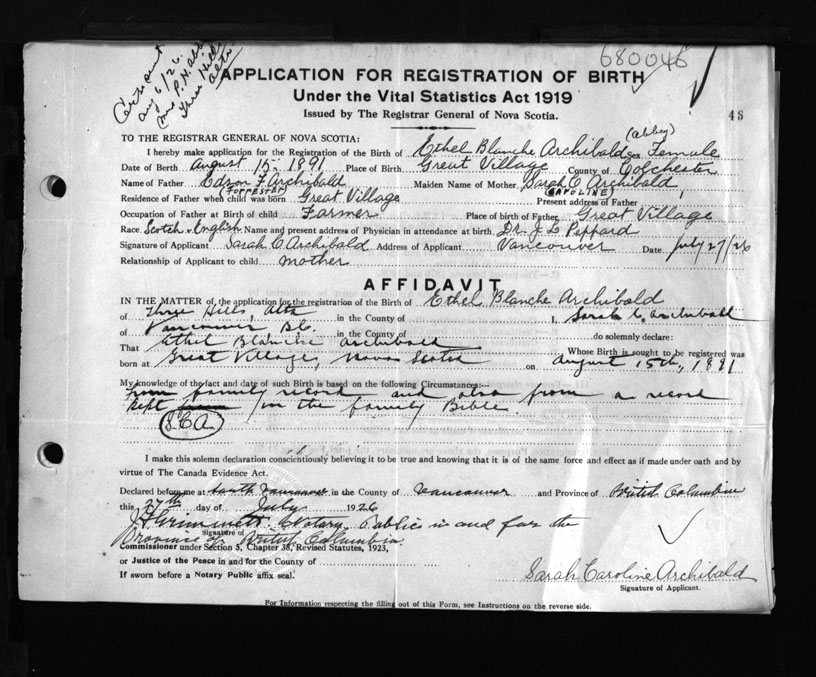 680046
Cert sent
Aug 6/26.
Three Hills
Alta
APPLICATION FOR REGISTRATION OF BIRTH
Under the Vital Statistics Act 1919
Issued by The Registrar General of Nova Scotia.
48
TO THE REGISTRAR GENERAL OF NOVA SCOTIA:
(abbey)
I hereby make application for the Registration of the Birth of Ethel Blanche Archibald Sex Female
Date of Birth August 15. 1891 Place of Birth Great Village County of Colchester
Name of Father Edson F. Archibald Maiden Name of Mother Sarah C Archibald
(FORRESTER) (CAROLINE)
Residence of Father when child was born Great Village Present address of Father
Occupation of Father at Birth of child Farmer Place of birth of Father Great Village
Race Scotch & English Name and present address of Physician in attendance at birth Dr. J L Peppard
Signature of Applicant Sarah C. Archibald Address of Applicant Vancouver Date July 27/26
Relationship of Applicant to child mother
AFFIDAVIT
IN THE MATTER of, the application for the registration of the Birth of Ethel Blanche Archibald
of Three Hills, Alta in the County of I, Sarah C. Archibald
of Vancouver B.C. in the County of do solemnly declare:
That Ethel Blanche Archibald Whose Birth is sought to be registered was
born at Great Village, Nova Scotia on August 15th, 1891
My knowledge of the fact and date of such Birth is based on the following Circumstances:—
from family record and also from a record
kept from in the family Bible
S.C.A.
I make this solemn declaration conscientiously believing it to be true and knowing that it is of the same force and effect as if made under oath and by
virtue of The Canada Evidence Act.
Declared before me at South Vancouver in the County of Vancouver and Province of British Columbia
this 27th day of July 1926
Notary Public in and for the
Signature of
Province of British Columbia.
Commissioner under Section 5, Chapter 38, Revised Statutes, 1923,
or Justice of the Peace in and for the County of
If sworn before a Notary Public affix seal.
Sarah Caroline Archibald
Signature of Applicant.
For Information respecting the filling out of this Form, see Instructions on the reverse side.